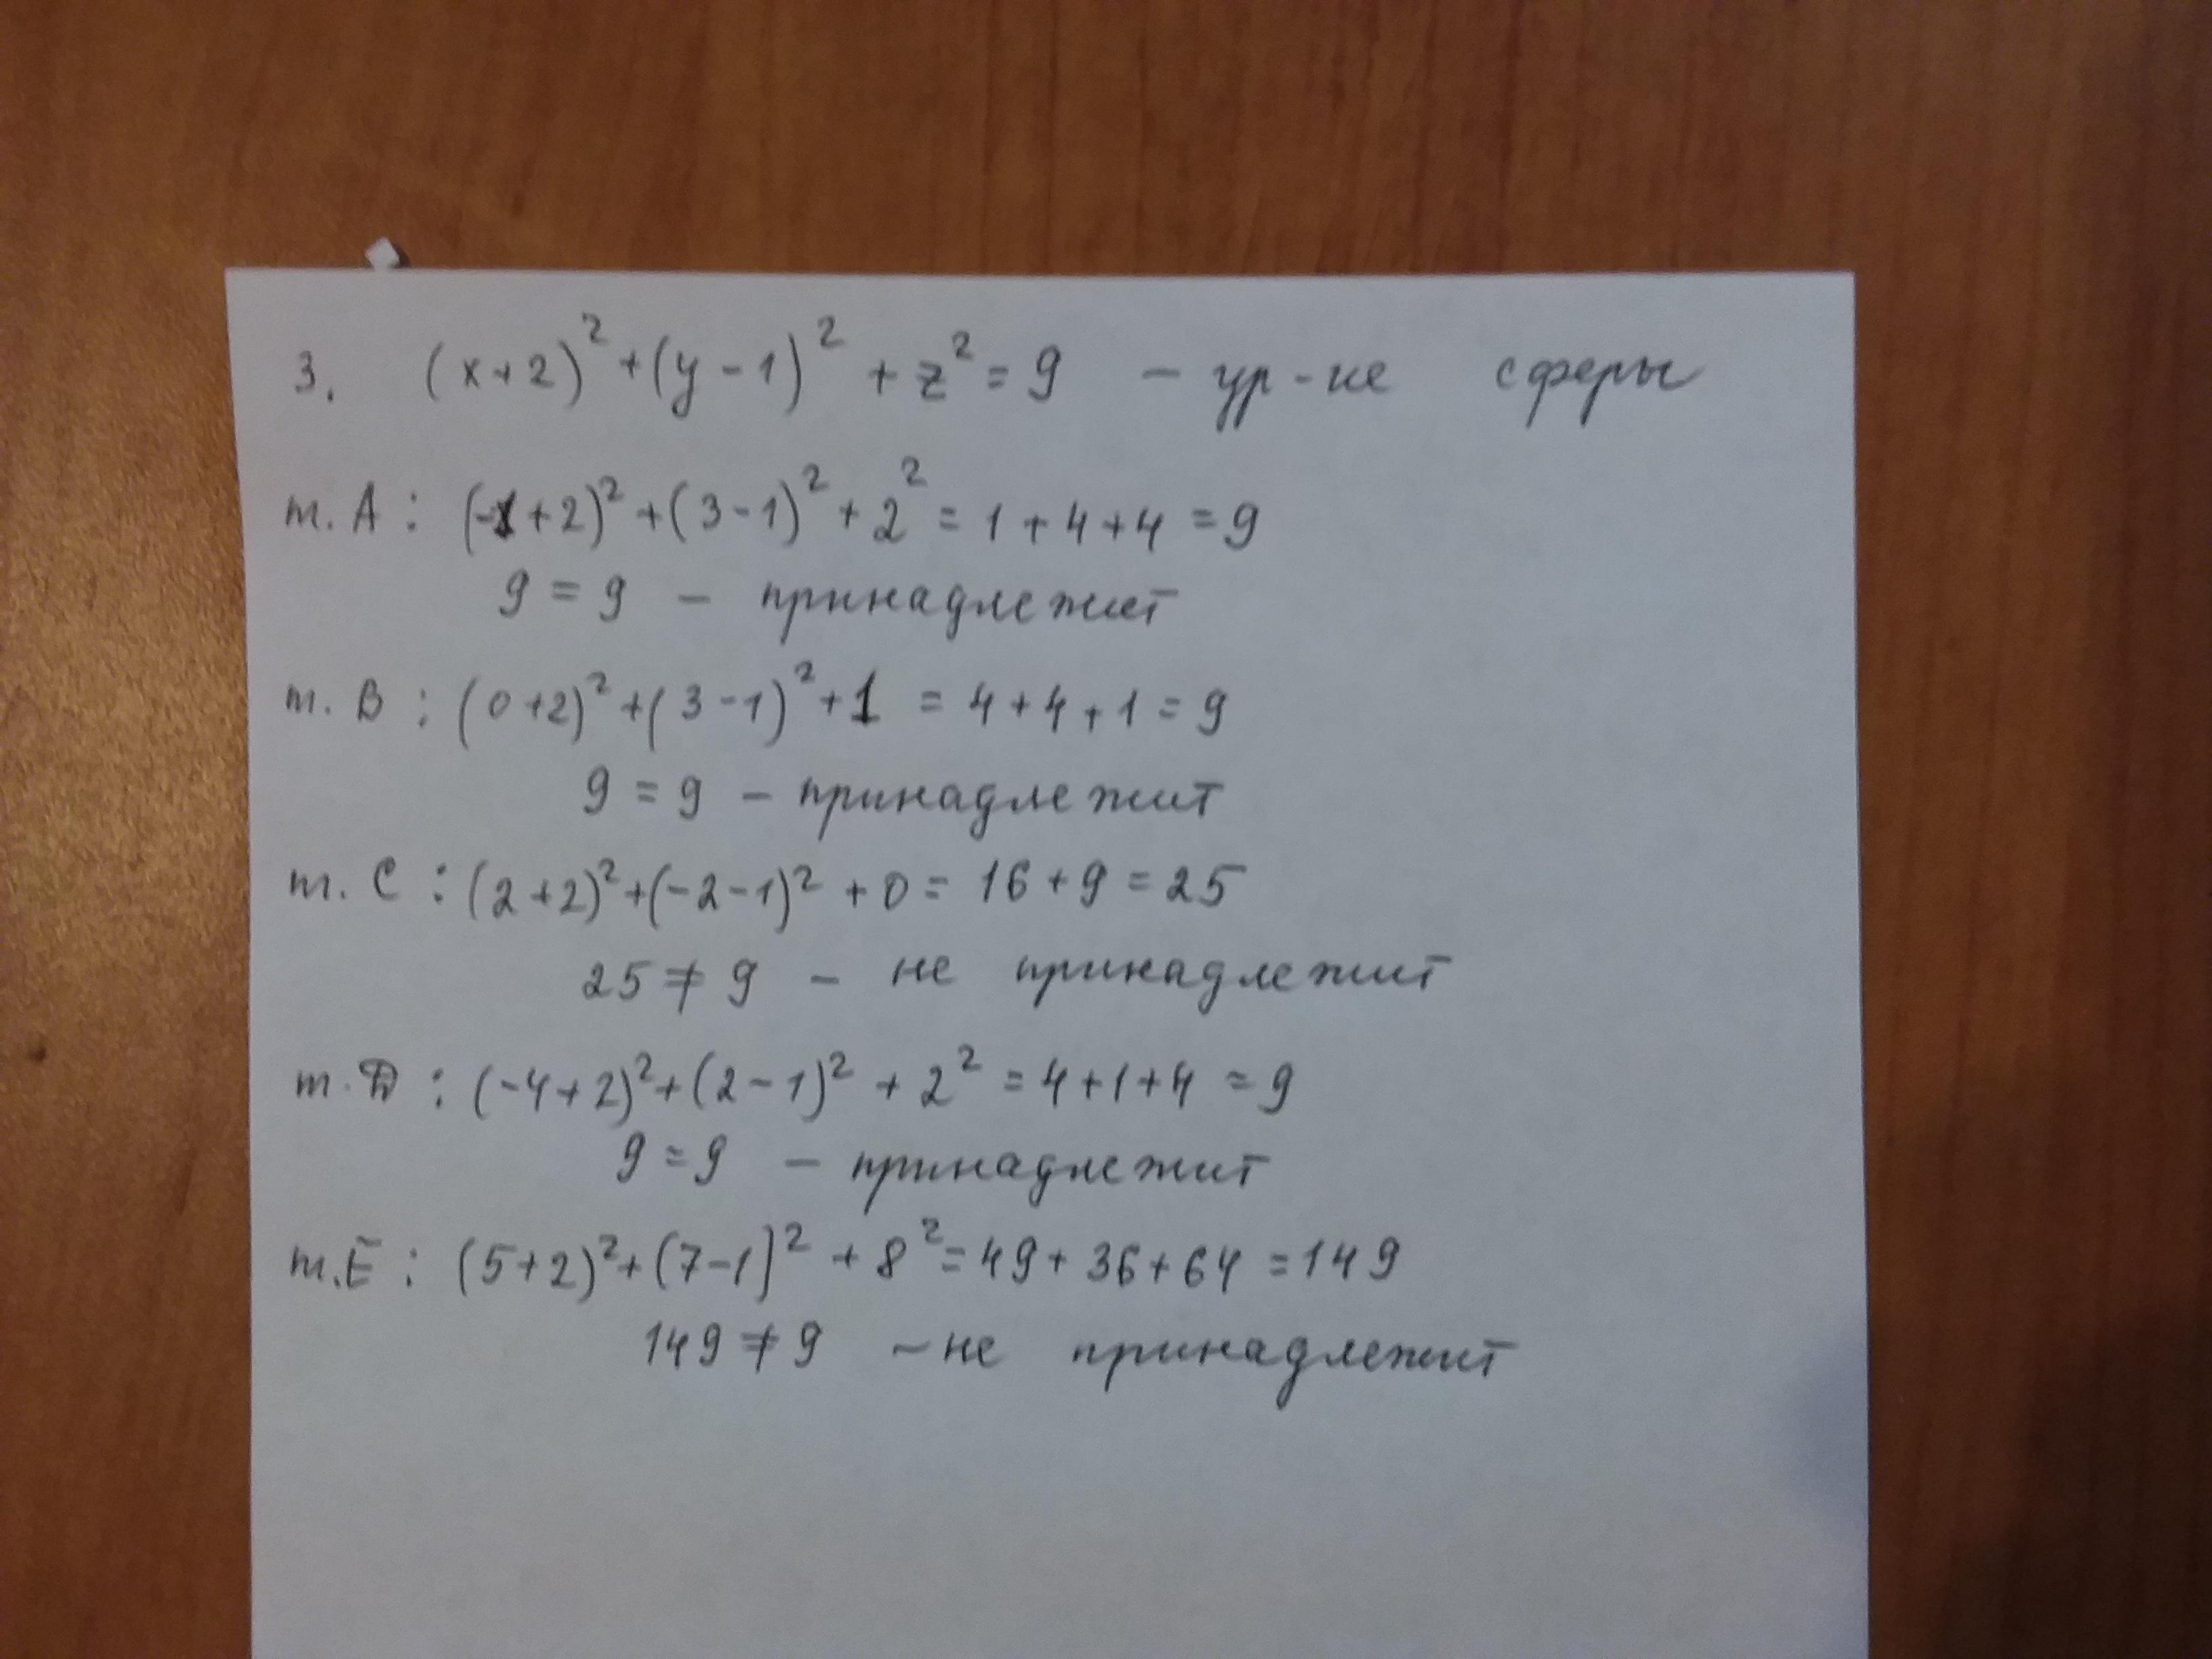 3. (x+2)² + (y-1)² + z² = 9 - ур-ие сферы
т. A : (-1+2)² + (3-1)² + 2² = 1 + 4 + 4 = 9
9 = 9 - принадлежит
т. B : (0+2)² + (3-1)² + 1 = 4 + 4 + 1 = 9
9 = 9 - принадлежит
т. C : (2+2)² + (-2-1)² + 0 = 16 + 9 = 25
25 ≠ 9 - не принадлежит
т. D : (-4+2)² + (2-1)² + 2² = 4+1+4 = 9
9 = 9 - принадлежит
т. E : (5+2)² + (7-1)² + 8² = 49 + 36 + 64 = 149
149 ≠ 9 - не принадлежит